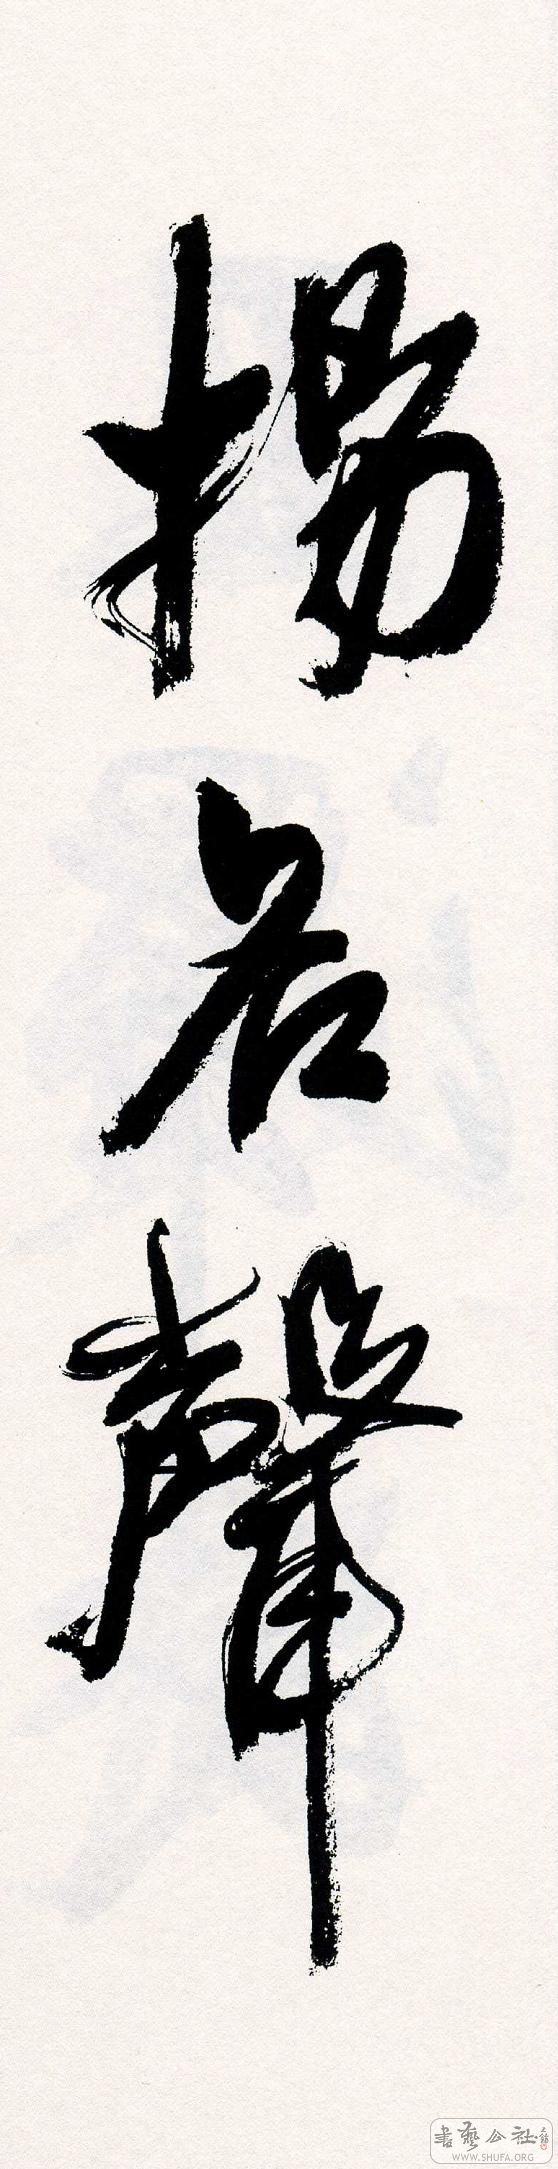 揚名聲
書藝公社
WWW.SHUFA.ORG